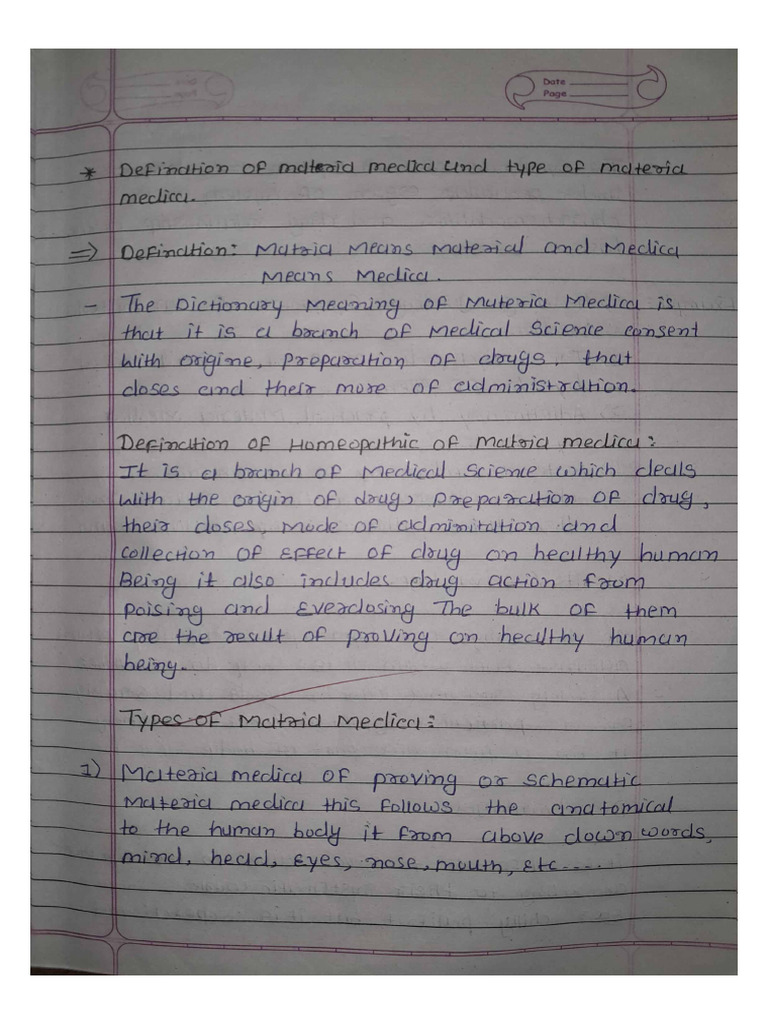 Date
Page
* Defination of materia medica and type of materia
medica.
=> Defination: Matria Means Material and Medica
Means Medica.
- The Dictionary Meaning of Materia Medica is
that it is a branch of Medical Science consent
With origine, Preparation of drugs, that
doses and their more of administration.
Defination of Homeopathic of Matria medica:
It is a branch of Medical Science which deals
With the origin of drug, preparation of drug,
their doses, mode of adminitation and
collection of Effect of drug on healthy human
Being it also includes drug action from
Poising and Everdosing The bulk of them
are the result of proving on healthy human
being.
Types of Matria Medica:
1) Materia medica of proving or schematic
Materia medica this follows the anatomical
to the human body it from above down words,
mind, head, Eyes, nose, mouth, Etc.....